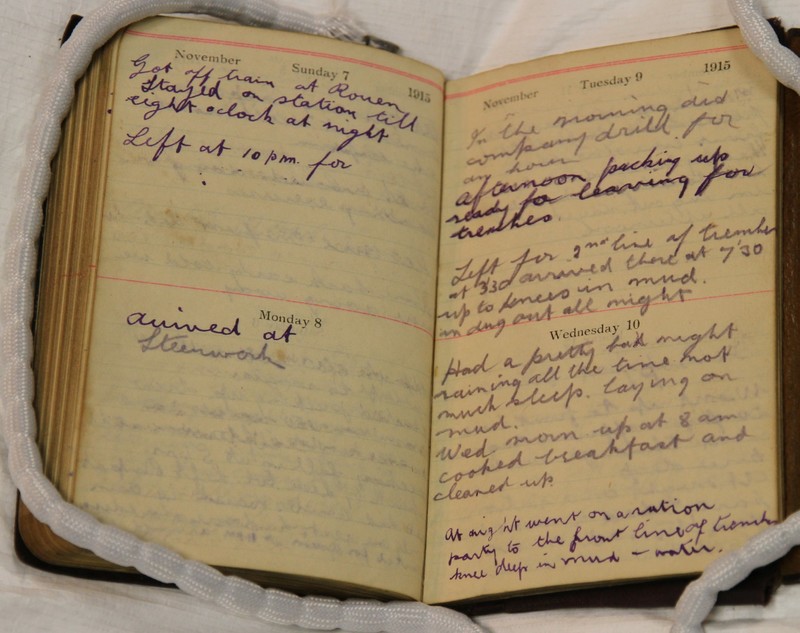 November Sunday 7 1915
Got off train at Rouen
Stayed on station till
eight oclock at night
Left at 10 pm. for
Monday 8
arrived at
Steenwork
November Tuesday 9 1915
In the morning did
company drill for
an hour
afternoon packing up
ready for leaving for
trenches.
Left for 2nd line of trenches
at 330 arrived there at 7'30
up to knees in mud.
in dug out all night
Wednesday 10
Had a pretty bad night
raining all the time not
much sleep. laying on
mud.
Wed morn up at 8 am
cooked breakfast and
cleaned up.
At night went on a ration
party to the front line of trenches
knee deep in mud - water.